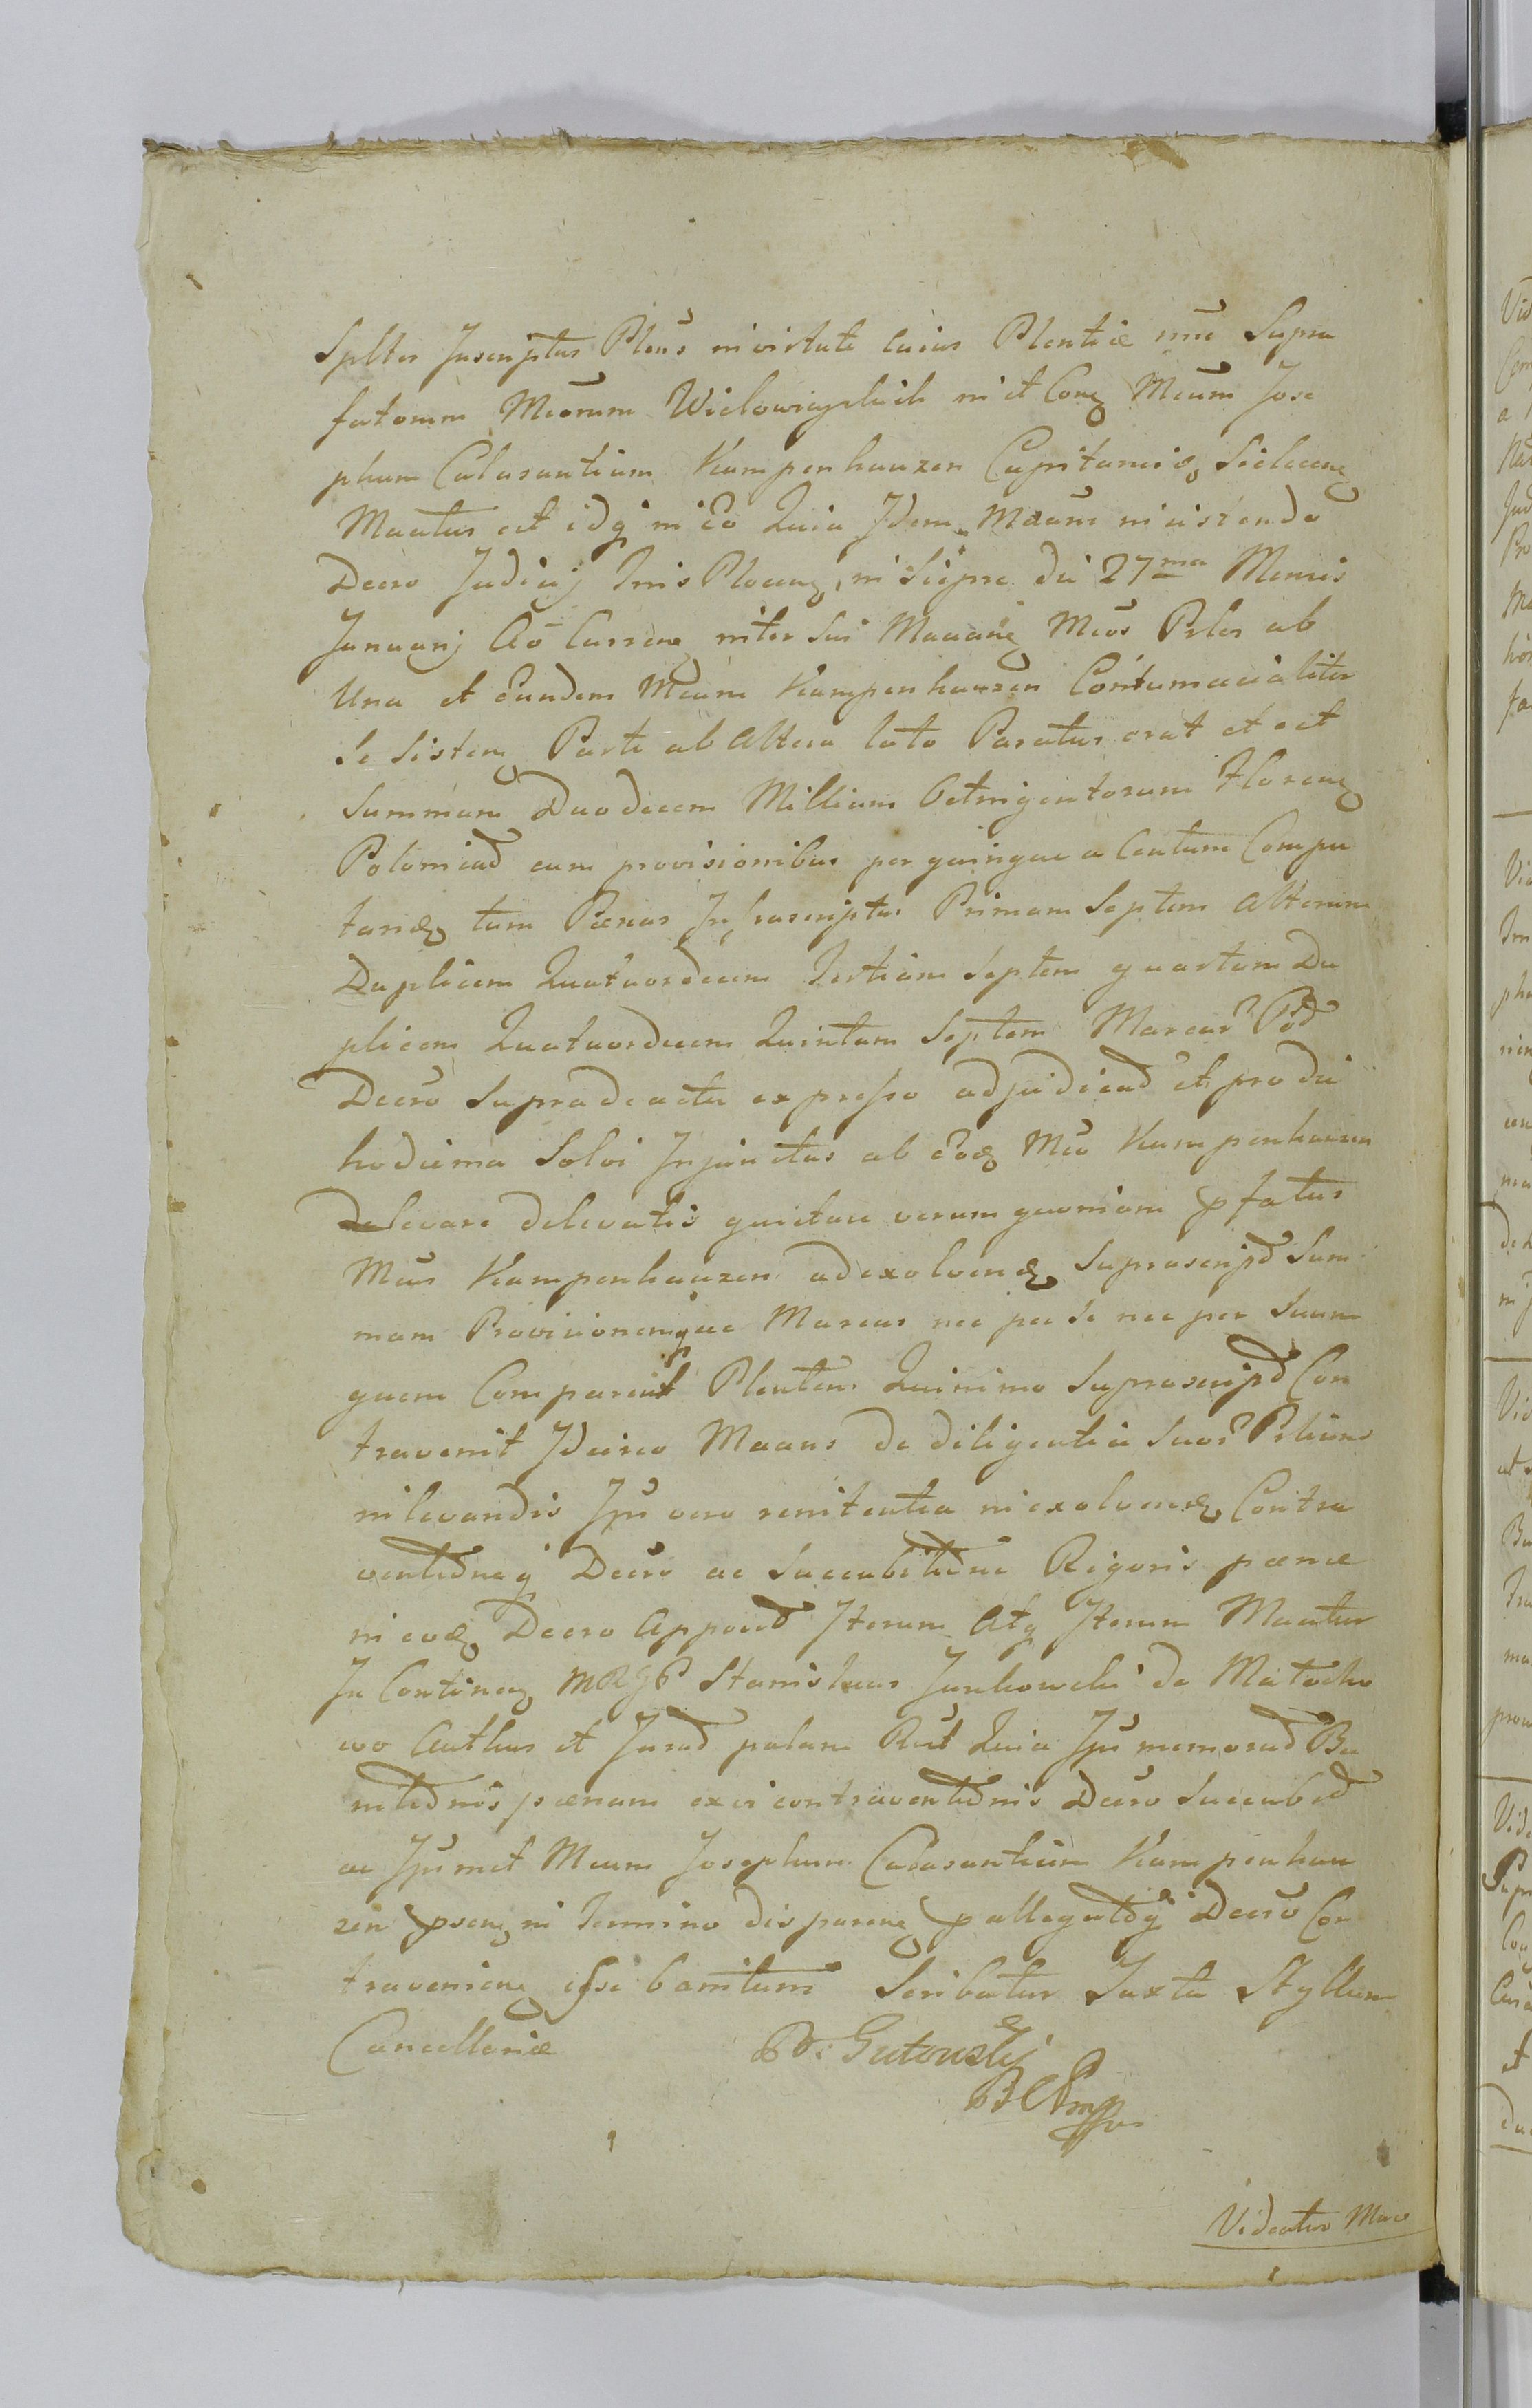 Splter Inscriptus Plens in virtute cuius Plentiæ nne Supra
fatorum Mcorum Wielowieyskich in et Con Mcum Jose
phum Calasantium Kampenhauzen Capitaneid Sielecen
Maatur est idq in eo Quia Idem Maans insistendo
Decro Judicij Tris Plocen, in Sierpc die 27ma Mensis
Januarij Ao Curren inter sui Maaane Mcos Prles ab
Una et Eundem Mcum Kampenhauzen Contumacialiter
se sisten Parte ab Altera lato Paratus erat et est
Summam Duodecem Millium Octingentorum Floren
Polonicad cum provisionibus per quinque a Centum Compu
tand tum Pænas Infrascriptas Primam Septem Alteram
Duplicem Quatuordecem Tertiam Septem quartam Du
plicem Quatuordecem Quintam Septem Marcar Pod
Decro Supradeacta expresso adjudicad et pro die
hodierna Solvi Injunctas ab eod Mco Kampenhauzen
delevare delevatis quietare verum quoniam pfatus
Mcus Kampenhauzen adexolvend Suprascripd Sum
mam Provisionemque Marcas nec per se nec per Suum
quem Comparuit Plentem Quinimo Suprascripd Con
travenit Idcirco Maans de diligentia Suor Prlium
in levandis Ipi vero renitentia in exolvend Contra
ventioneq Decro ac Succubitione Rigoris pænæ
in eod Decro Apposid Iterum Atq Iterum Maatur
In Continen MRGP Stanislaus Jankowski de Matocho
wo Authus et Jurad palam Rcit Quia Ipi memorad Ba
nitionis pænam ex vi contraventionis Decro Succubed
ac Ipimet Mcum Josephum Calasantium Kampenhau
zen psen in Termino disparen p allegatoq Decro Con
travenien esse banitum Scribatur Juxta Styllum
Cancellariæ W. Gutowskij
BCPmpp
Videatur Mac